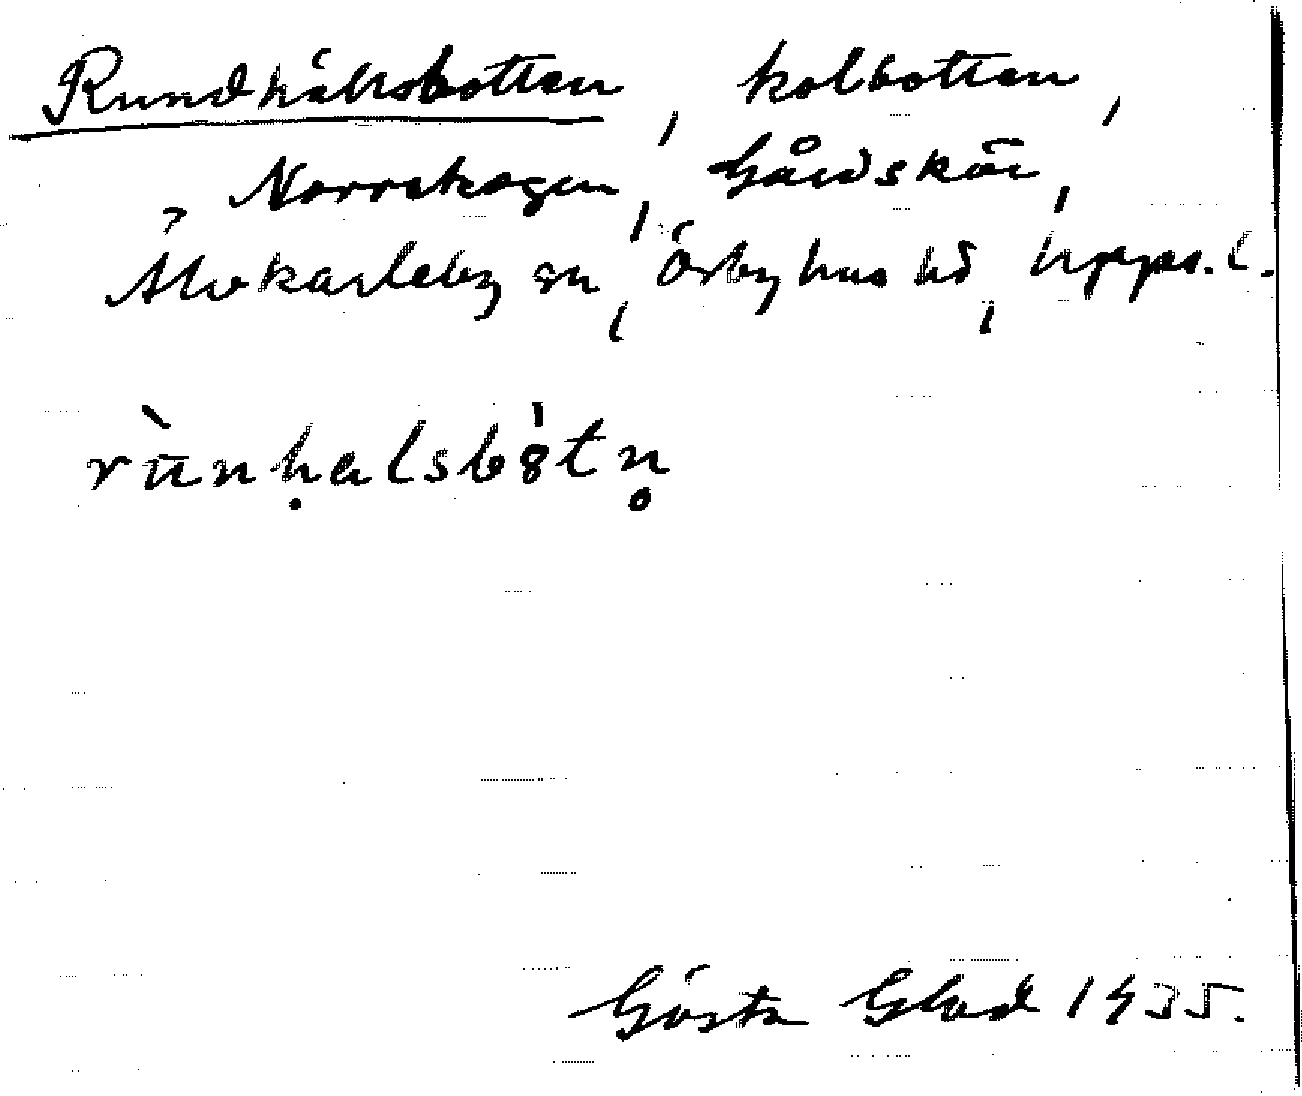 Rundhälsbotten, kolbotten,
, Norrskogen, Gårdskär,
Älvkarleby sn, Örbyhus hd, Upps. l.
rùnḥalsbȯtn̥
Gösta Glad 1935.